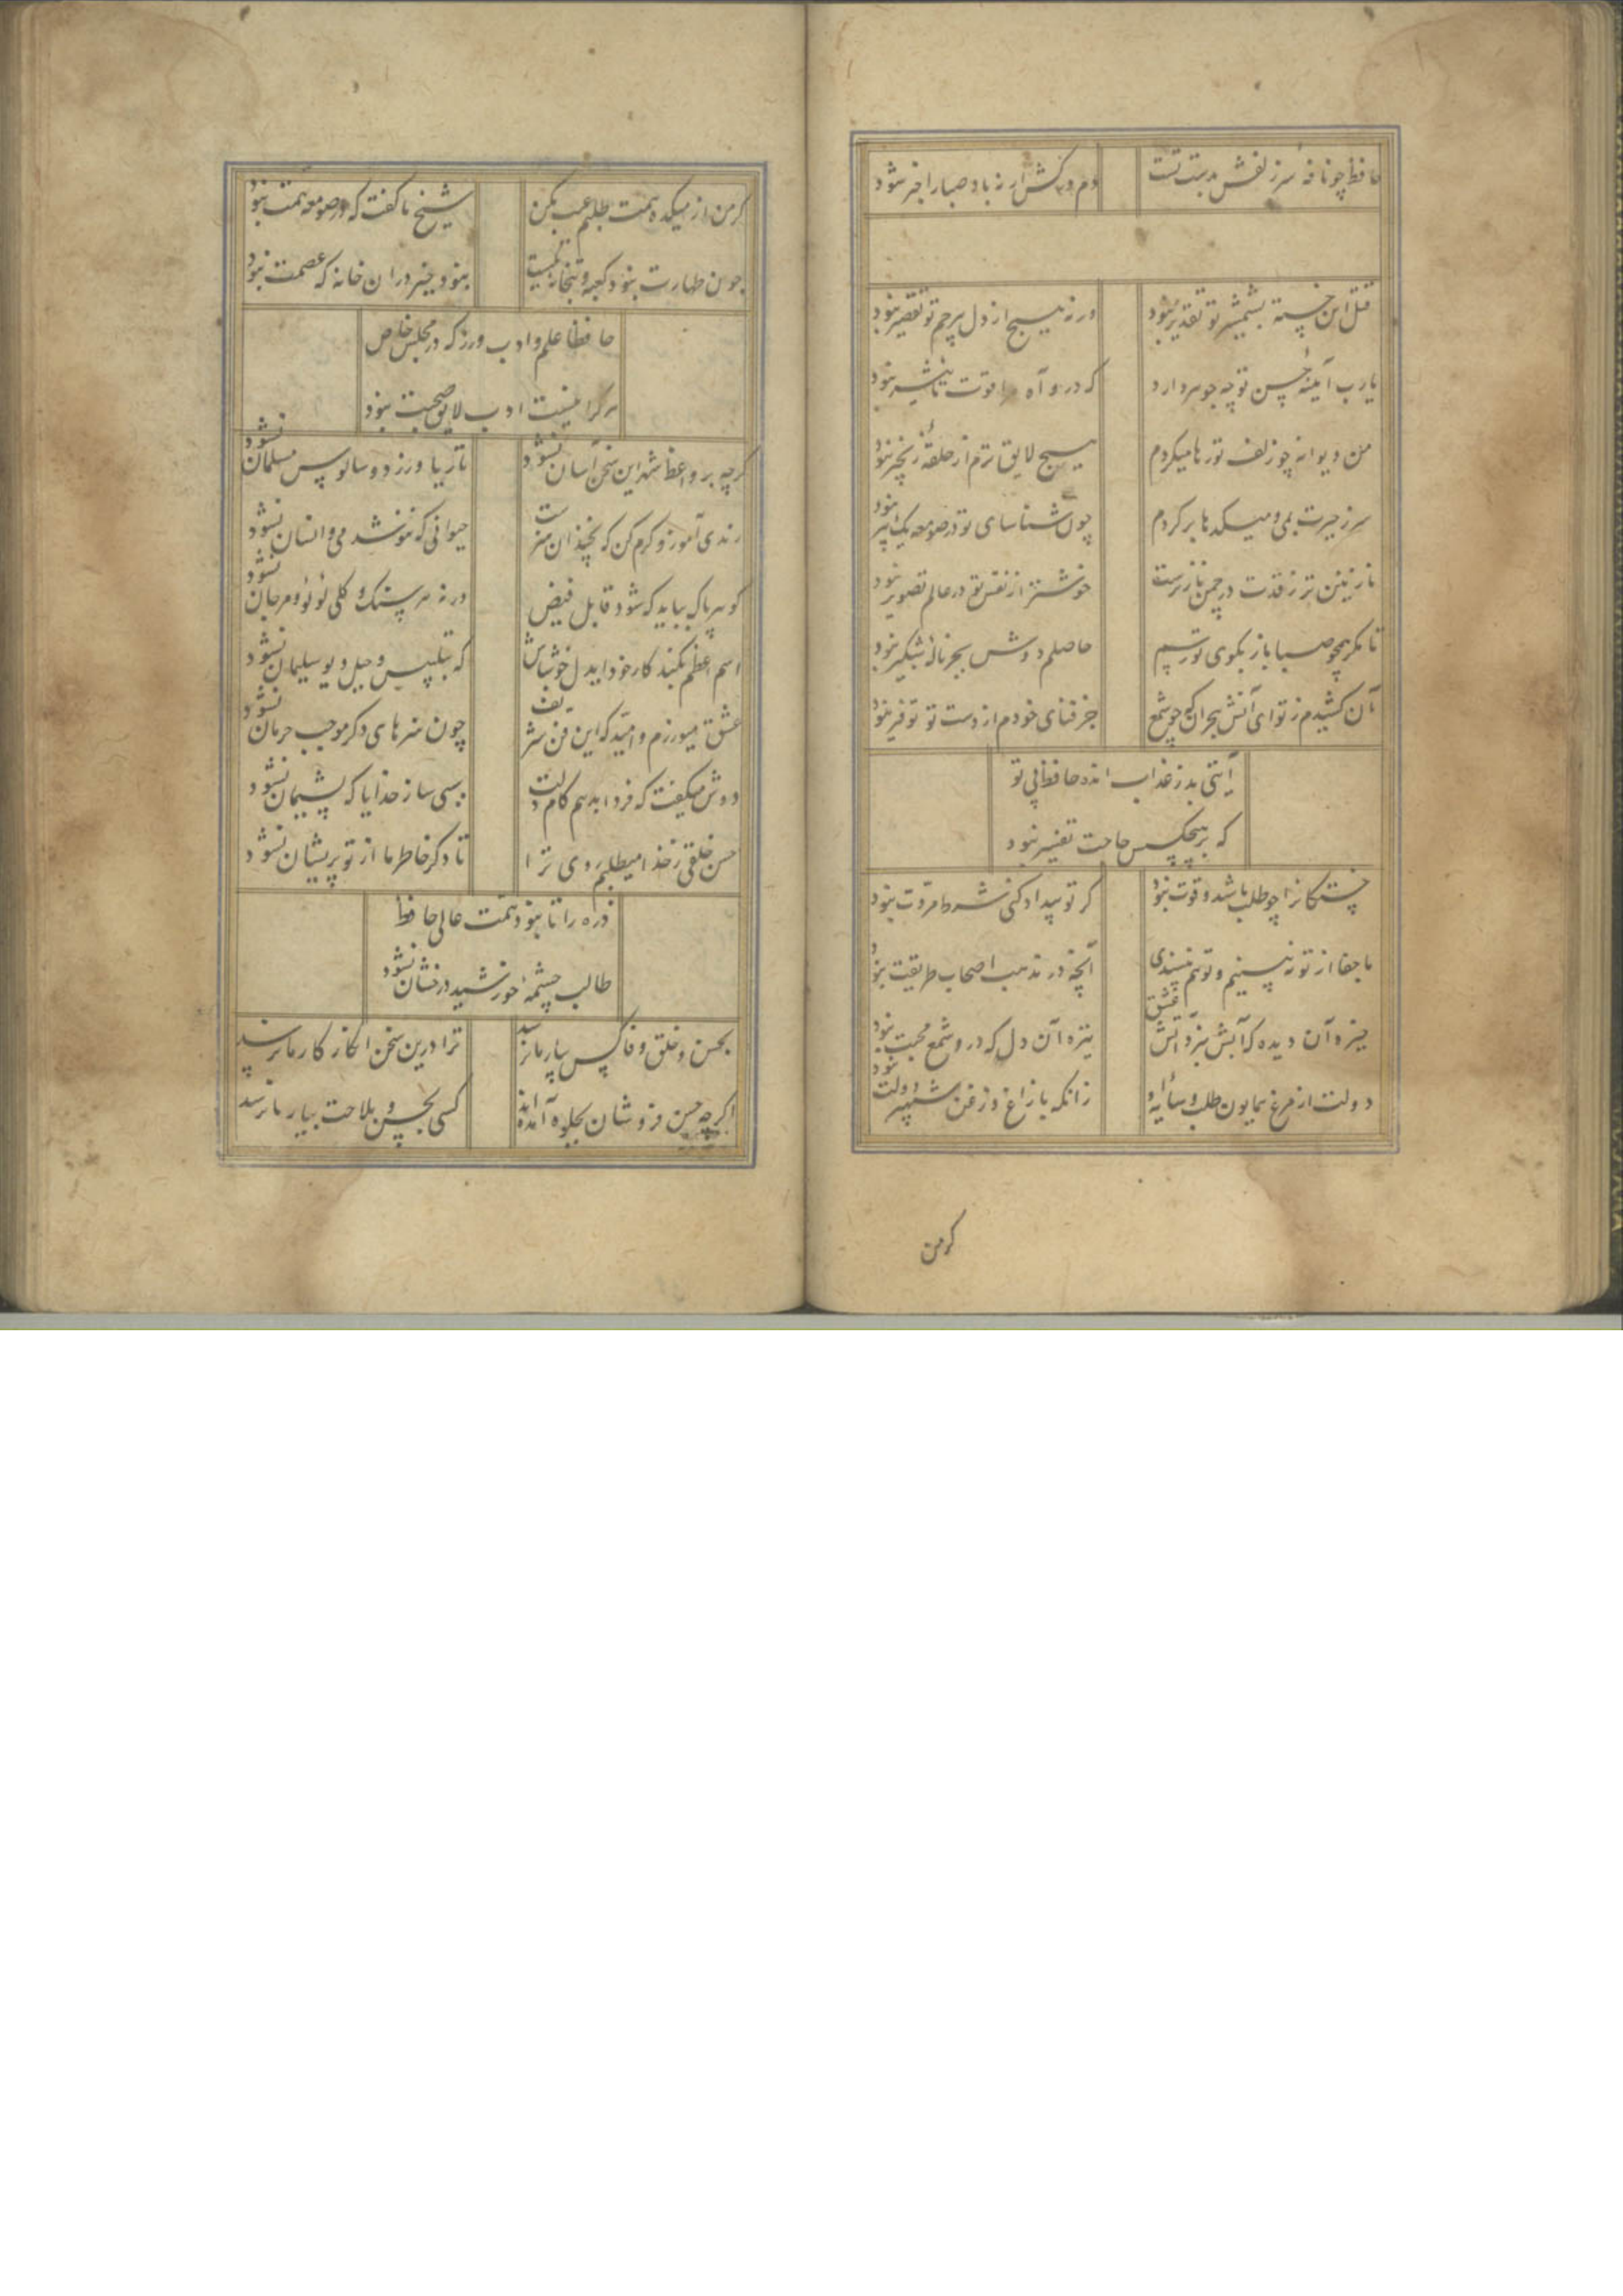 حافظ چو نافه سر زلفش بدست تست
دم درکش ار نه باد صبا را خبر شود
قتل این خسته بشمشیر تو تقدیر نبود
ورنه هیچ از دل بیرحم تو تقصیر نبود
یارب آیینهٔ حسن تو چه جوهر دارد
که درو آه مرا قوت تاثیر نبود
من دیوانه چو زلف تو رها میکردم
هیچ لایق ترم از حلقهٔ زنجیر نبود
سر ز حیرت بمی و میکدها بر کردم
چون شناسای تو در صومعه یک پیر نبود
نازنین تر ز قدت در چمن ناز نرست
خوشتر از نقش تو در عالم تصویر نبود
تا مگر همچو صبا باز بکوی تو رسم
حاصلم دوش بجز نالهٔ شبگیر نبود
آن کشیدم ز تو ای آتش هجران که چو شمع
جز فنای خودم از دست تو توفیر نبود
آیتی بد ز عذاب انده حافظ بی تو
که بر هیچکس حاجت تفسیر نبود
خستگانرا چو طلب باشد و قوت نبود
گر تو بیداد کنی شرط مروت نبود
ما جفا از تو نه بینیم و تو هم نپسندی
آنچه در مذهب اصحاب طریقت نبود
خیره آن دیده که آبش نبرد آتش عشق
تیره آن دل که درو شمع محبت نبود
دولت از مرغ همایون طلب و سایهٔ او
زانکه با زاغ و زغن شهپر دولت نبود
گر من
گر من از میکده همت طلبم عیب مکن
شیخ ما گفت که در صومعه همت نبود
چون طهارت نبود کعبه و بتخانه یکیست
نبود خیر در ان خانه که عصمت نبود
حافظا علم و ادب ورز که در مجلس خاص
هرکرا نیست ادب لایق صحبت نبود
گرچه بر واعظ شهر این سخن آسان نشود
تا ریا ورزد و سالوس مسلمان نشود
رندی آموز و کرم کن که نچندان هنرست
حیوانی که ننوشد می و انسان نشود
گوهر پاک بباید که شود قابل فیض
ورنه هر سنگ و گلی لؤلؤ و مرجان نشود
اسم اعظم بکند کار خود ایدل خوش باش
که بتلبیس و حیل دیو سلیمان نشود
عشق میورزم و امید که این فن شریف
چون هنرهای دگر موجب حرمان نشود
دوش میگفت که فردا بدهم کام دلت
سببی ساز خدایا که پشیمان نشود
حسن خلقی ز خدا میطلبم روی ترا
تا دگر خاطر ما از تو پریشان نشود
ذره را تا نبود همت عالی حافظ
طالب چشمهٔ خورشید درخشان نشود
بحسن و خلق و وفا کس بیار ما نرسد
ترا درین سخن انکار کار ما نرسد
اگرچه حسن فروشان بجلوه آمده اند
کسی بحسن و ملاحت بیار ما نرسد